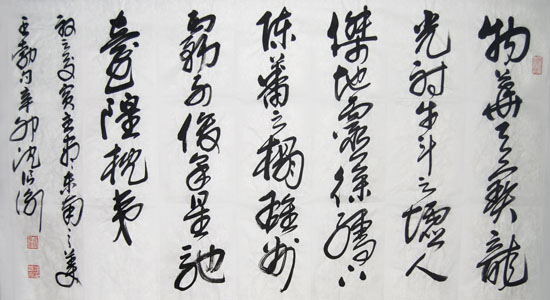 物華天寶龍
光射牛斗之墟人
傑地靈徐孺下
陳蕃之榻雄州
霧列俊采星馳
臺隍枕夷
夏之交賓主盡東南之美
王勃句辛卯沈